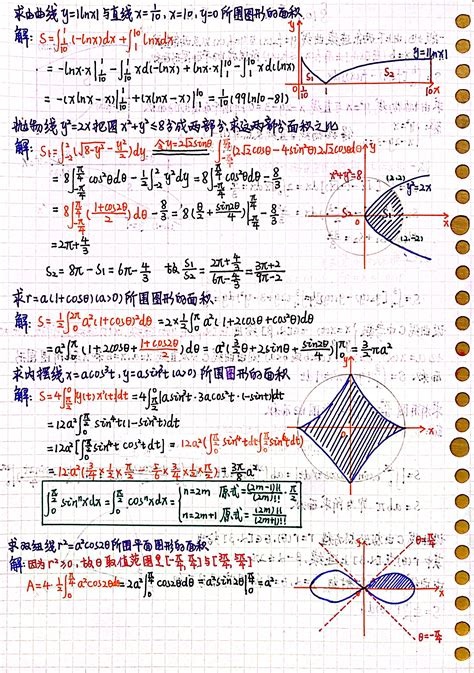 求由曲线 y=|lnx| 与直线 x=1/10, x=10, y=0 所围图形的面积
解: S=∫_{1/10}^{1}(-lnx)dx+∫_{1}^{10}lnxdx
= -lnx·x|_{1/10}^{1} - ∫_{1/10}^{1}xd(-lnx) + lnx·x|_{1}^{10} - ∫_{1}^{10}xd(lnx)
= -(xlnx-x)|_{1/10}^{1} + (xlnx-x)|_{1}^{10} = 1/10(99ln10-81)
y
y=|lnx|
S1
S2
0
1/10
1
10
x
抛物线 y²=2x 把图 x²+y²≤8 分成两部分, 求这两部分面积之比
解: S1=∫_{-2}^{2}(√(8-y²)-y²/2)dy 令y=2√2sinθ ∫_{-π/4}^{π/4}(2√2cosθ-4sin²θ)2√2cosθdθ
= 8∫_{-π/4}^{π/4}cos²θdθ - 1/2∫_{-2}^{2}y²dy = 8∫_{-π/4}^{π/4}cos²θdθ - 8/3
= 8∫_{-π/4}^{π/4}(1+cos2θ/2)dθ - 8/3 = 8(θ/2+sin2θ/4)|_{-π/4}^{π/4} - 8/3
= 2π+4/3
S2=8π-S1=6π-4/3 故 S1/S2=(2π+4/3)/(6π-4/3)=(3π+2)/(9π-2)
x²+y²=8
(2,2)
y²=2x
S2
S1
0
x
(2,-2)
求 r=a(1+cosθ)(a>0) 所围图形的面积
解: S=1/2∫_{0}^{2π}a²(1+cosθ)²dθ=2×1/2∫_{0}^{π}a²(1+2cosθ+cos²θ)dθ
=a²∫_{0}^{π}(1+2cosθ+1+cos2θ/2)dθ=a²(3/2θ+2sinθ+sin2θ/4)|_{0}^{π}=3/2πa²
求内摆线 x=acos³t, y=asin³t(a>0) 所围图形的面积
解: S=4∫_{0}^{π/2}|y(t)x'(t)|dt=4∫_{0}^{π/2}|asin³t·3acos²t·(-sint)|dt
=12a²∫_{0}^{π/2}sin⁴t(1-sin²t)dt
=12a²[∫_{0}^{π/2}sin⁴t cos²t dt]=12a²(∫_{0}^{π/2}sin⁴tdt-∫_{0}^{π/2}sin⁶tdt)
=12a²(3/4×1/2×π/2-5/6×3/4×1/2×π/2)=3π/8a²
∫_{0}^{π/2}sinⁿxdx=∫_{0}^{π/2}cosⁿxdx={n=2m 原式=(2m-1)!!/(2m)!!·π/2
n=2m+1 原式=(2m)!!/(2m+1)!!
0
x
求双纽线 r²=a²cos2θ 所围平面图形的面积
解: 因为 r²≥0, 故θ取值范围是[-π/4,π/4]与[3π/4,5π/4]
A=4·1/2∫_{0}^{π/4}a²cos2θdθ=2a²∫_{0}^{π/4}cos2θdθ=a²sin2θ|_{0}^{π/4}=a²
θ=π/4
x
θ=-π/4